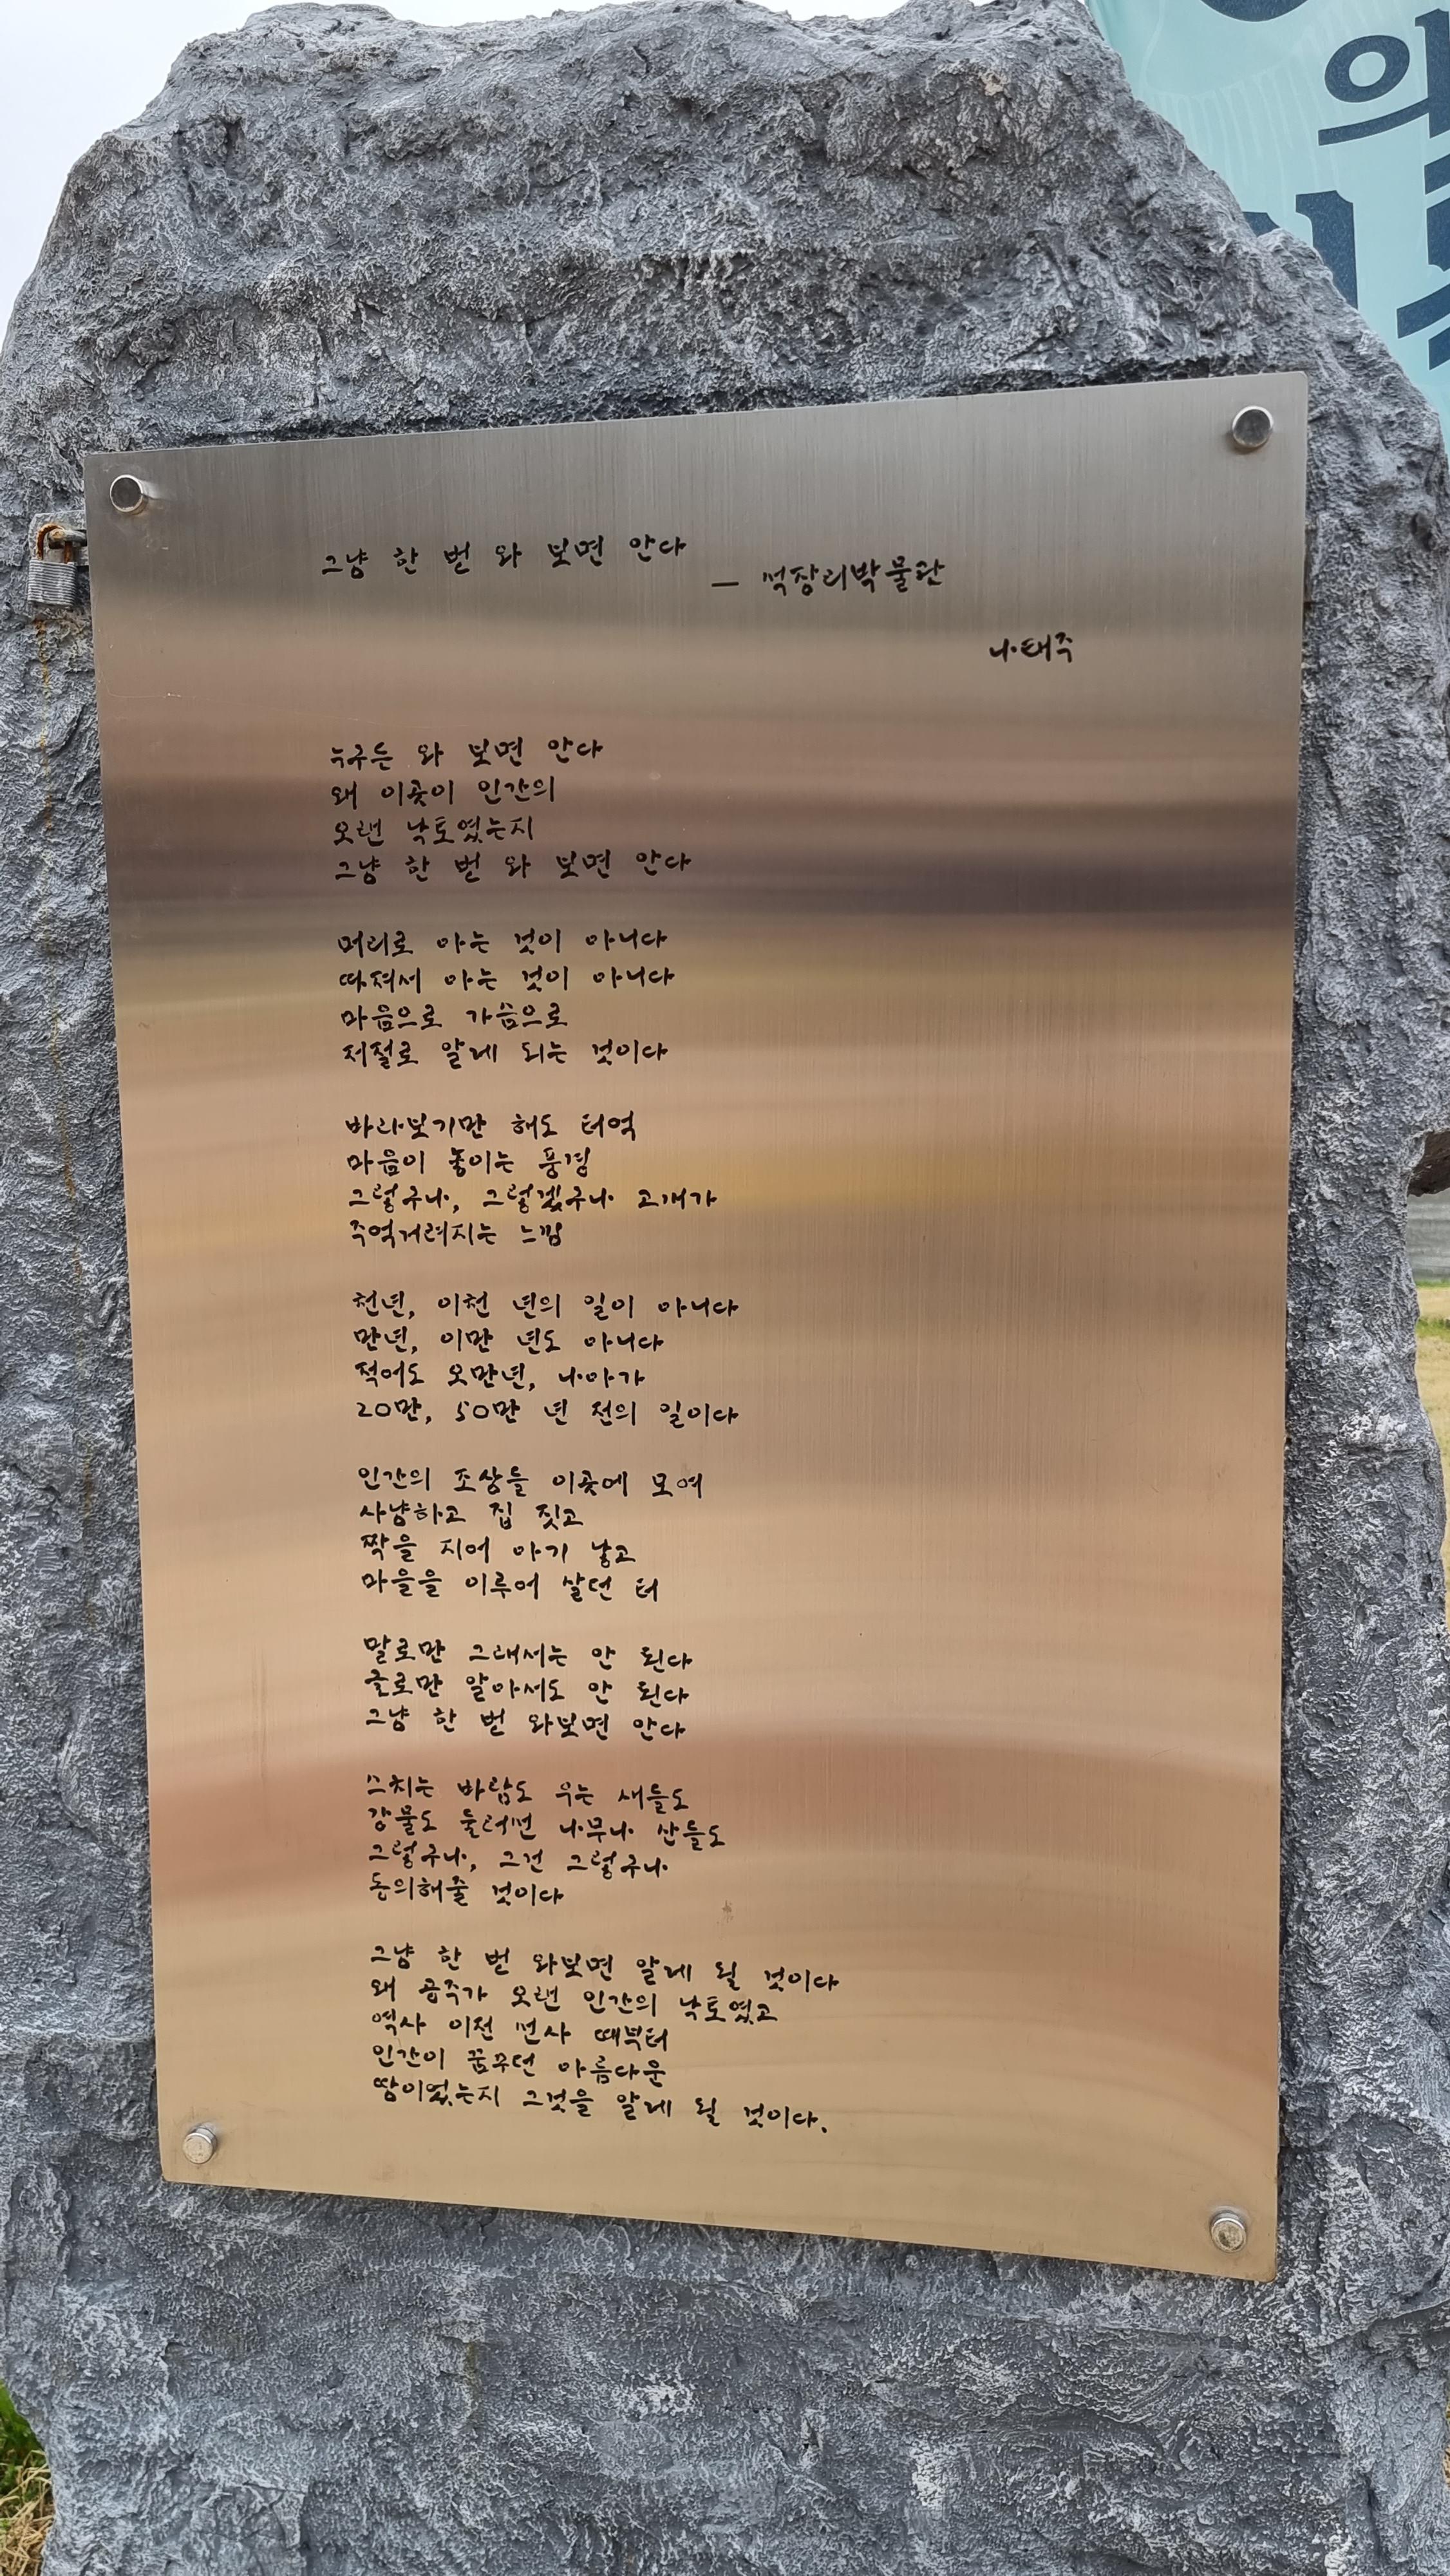 그냥 한 번 와 보면 안다
— 석장리박물관
나태주
누구든 와 보면 안다
왜 이곳이 인간의
오랜 낙토였는지
그냥 한 번 와 보면 안다
머리로 아는 것이 아니다
따져서 아는 것이 아니다
마음으로 가슴으로
저절로 알게 되는 것이다
바라보기만 해도 터억
마음이 놓이는 풍경
그렇구나, 그렇겠구나 고개가
주억거려지는 느낌
천년, 이천 년의 일이 아니다
만년, 이만 년도 아니다
적어도 오만년, 나아가
20만, 50만 년 전의 일이다
인간의 조상들 이곳에 모여
사냥하고 집 짓고
짝을 지어 아기 낳고
마을을 이루어 살던 터
말로만 그래서는 안 된다
글로만 알아서도 안 된다
그냥 한 번 와보면 안다
스치는 바람도 우는 새들도
강물도 둘러선 나무나 산들도
그렇구나, 그건 그렇구나
동의해줄 것이다
그냥 한 번 와보면 알게 될 것이다
왜 공주가 오랜 인간의 낙토였고
역사 이전 선사 때부터
인간이 꿈꾸던 아름다운
땅이었는지 그것을 알게 될 것이다.